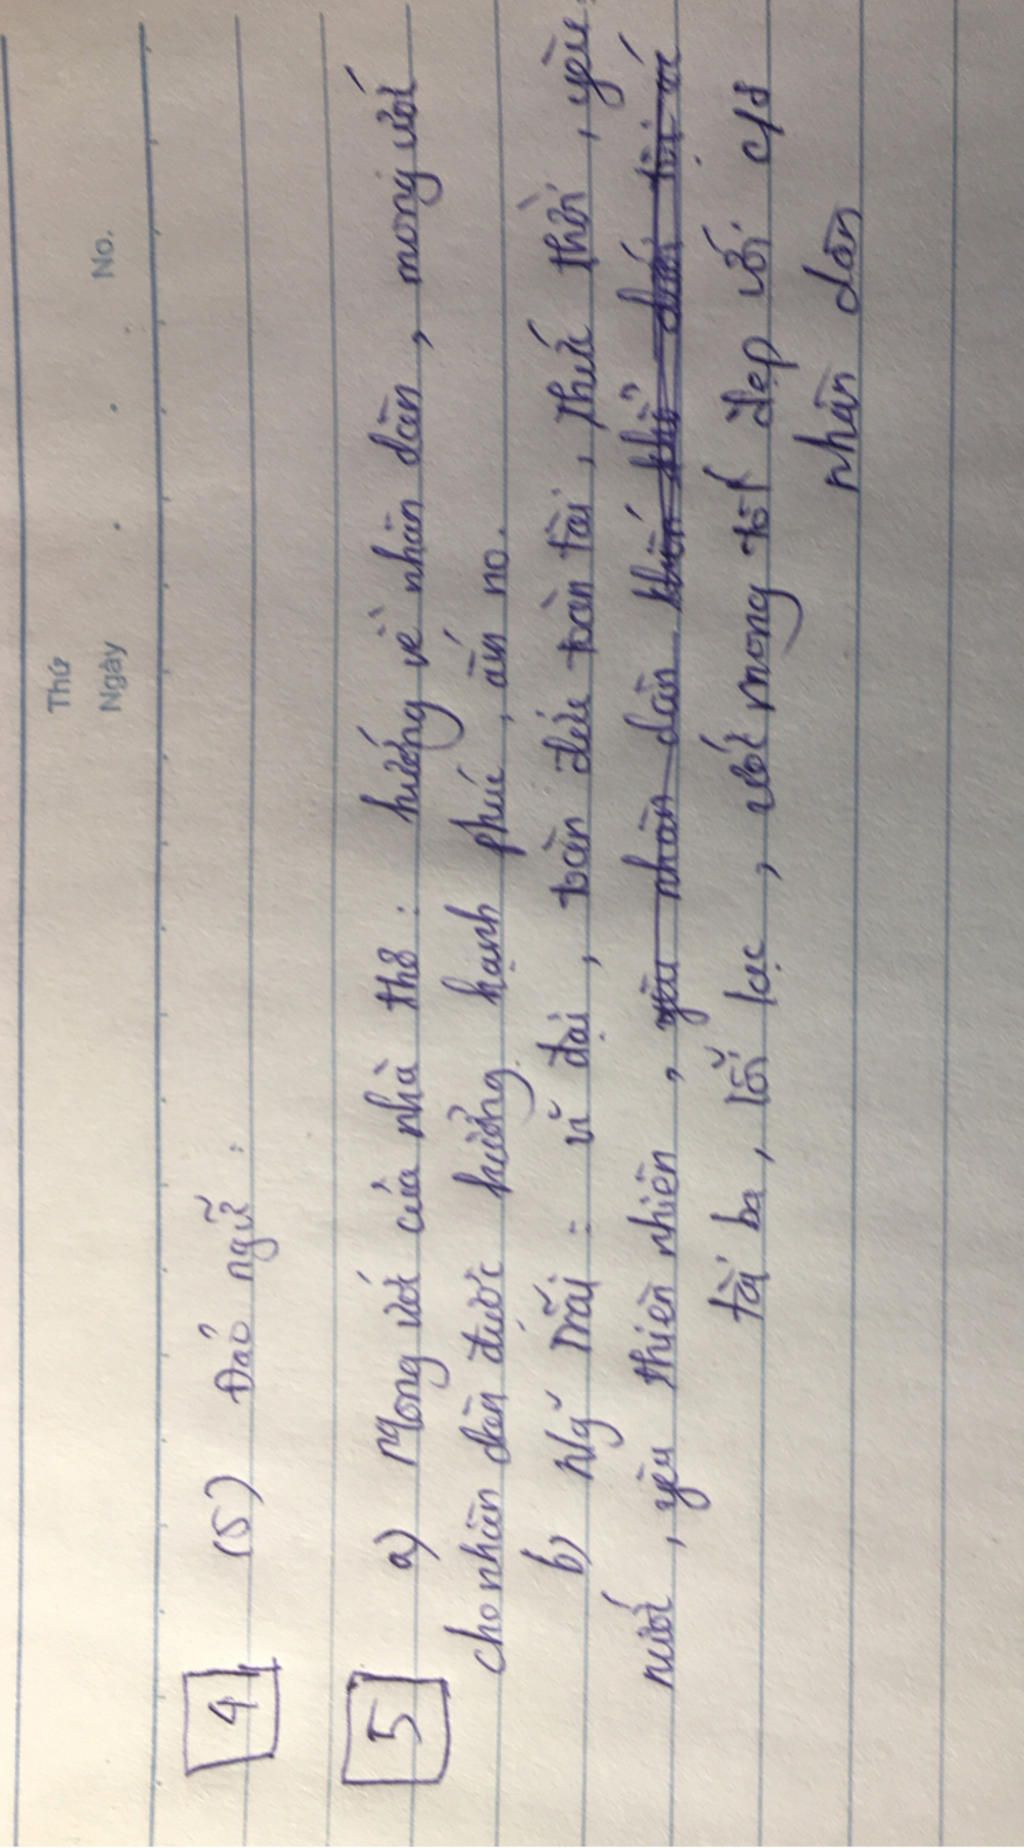 Thứ
Ngày . . . No.
4 (5) Đảo ngữ :
5 a) Mong ước của nhà thơ : hướng về nhân dân , mong ước
cho nhân dân được hưởng hạnh phúc , ấm no .
b) Ng̃ Trãi : vĩ đại , toàn đức toàn tài , thức thời , yêu
nước , yêu thiên nhiên , yêu nhân dân
tài ba , lỗi lạc , ước mong tốt đẹp với c/s
nhân dân